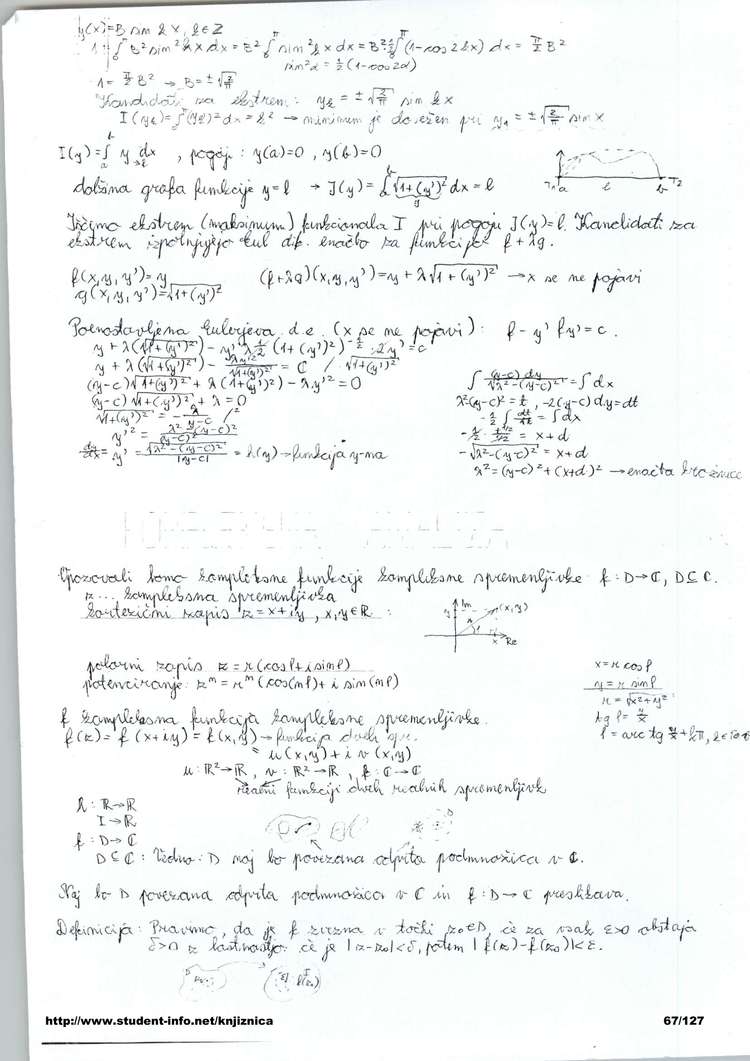 y(x)=B sin kx, k∈Z
1 = ∫₀^π B² sin² kx dx = B² ∫₀^π sin² kx dx = B² ½ ∫₀^π (1-cos 2kx) dx = π/2 B²
sin²α = ½(1-cos 2α)
1 = π/2 B² → B = ±√(2/π)
Kandidati za ekstrem: y_k = ±√(2/π) sin kx
I(y_k) = ∫₀^π (y_k')² dx = k² → minimum je dosežen pri y₁ = ±√(2/π) sin x
I(y) = ∫_a^b y dx, pogoj: y(a)=0, y(b)=0
T₁ a l b T₂
dolžina grafa funkcije y = l → J(y) = ∫_a^b √(1+(y')²) dx = l
g
Iščemo ekstrem (maksimum) funkcionala I pri pogoju J(y)=l. Kandidati za
ekstrem izpolnjujejo Eul. dif. enačbo za funkcijo f+λg.
f(x,y,y')=y
g(x,y,y')=√(1+(y')²)
(f+λg)(x,y,y')=y+λ√(1+(y')²) → x se ne pojavi
Poenostavljena Eulerjeva d.e. (x se ne pojavi): f - y' f_y' = c.
y+λ(√(1+(y')²)) - y' λ ½ (1+(y')²)^(-½) · 2y' = c
y+λ(√(1+(y')²)) - λy'²/√(1+(y')²) = c / · √(1+(y')²)
(y-c)√(1+(y')²) + λ(1+(y')²) - λy'² = 0
(y-c)√(1+(y')²) + λ = 0
√(1+(y')²) = -λ/(y-c) /²
y'² = (λ²-(y-c)²)/(y-c)²
dy/dx = y' = √(λ²-(y-c)²)/|y-c| = h(y) → funkcija y-na
∫ (y-c) dy/√(λ²-(y-c)²) = ∫ dx
λ²-(y-c)² = t, -2(y-c) dy = dt
-½ ∫ dt/√t = ∫ dx
-½ · t^(1/2)/(1/2) = x+d
-√(λ²-(y-c)²) = x+d
λ² = (y-c)² + (x+d)² → enačba krožnice
KOMPLEKSNA ANALIZA
Opazovali bomo kompleksne funkcije kompleksne spremenljivke f: D→C, D⊆C.
z... kompleksna spremenljivka
kartezični zapis z = x+iy, x,y∈R:
y Im (x,y)
r φ
x Re
polarni zapis z = r(cosφ+i sinφ)
potenciranje: z^n = r^n (cos(nφ)+i sin(nφ))
x = r cosφ
y = r sinφ
r = √(x²+y²)
tgφ = y/x
φ = arc tg y/x + kπ, k∈
f kompleksna funkcija kompleksne spremenljivke.
f(z) = f(x+iy) = f(x,y) → funkcija dveh spr.
= u(x,y)+i v(x,y)
u: R²→R, v: R²→R, f: C→C
realni funkciji dveh realnih spremenljivk
h: R→R
I→R
f: D→C
D⊆C: Vedno: D naj bo povezana odprta podmnožica v C.
Naj bo D povezana odprta podmnožica v C in f: D→C preslikava.
Definicija: Pravimo, da je f zvezna v točki z₀∈D, če za vsak ε>0 obstaja
δ>0 z lastnostjo: če je |z-z₀|<δ, potem |f(z)-f(z₀)|<ε.
D f(z₀)
http://www.student-info.net/knjiznica 67/127